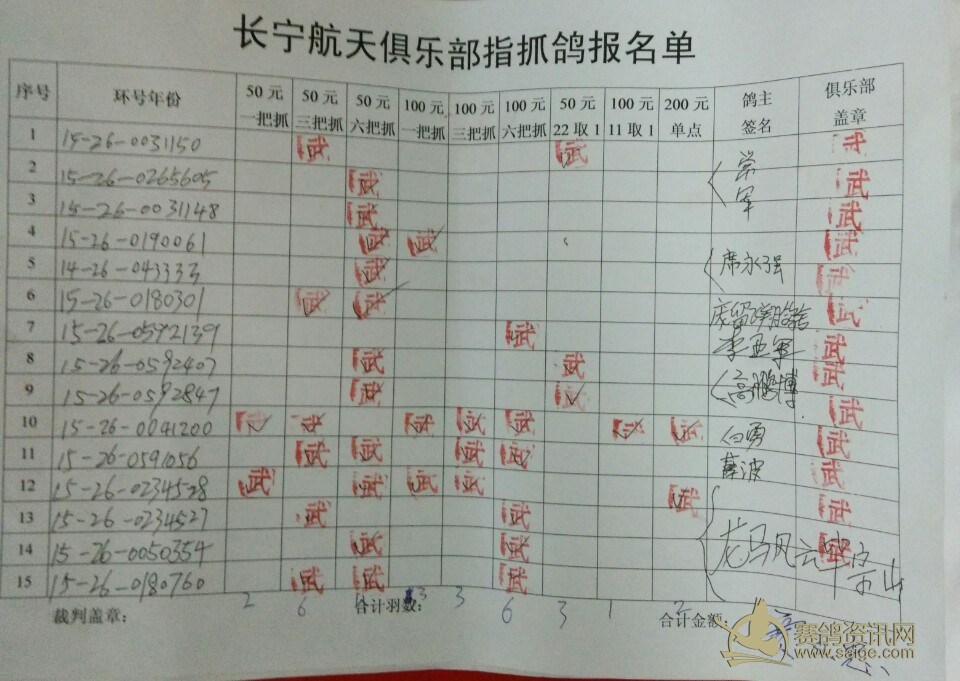 长宁航天俱乐部指抓鸽报名单
序号 环号年份 50元一把抓 50元三把抓 50元六把抓 100元一把抓 100元三把抓 100元六把抓 50元22取1 100元11取1 200元单点 鸽主签名 俱乐部盖章
1 15-26-0031150 武 武 武
2 15-26-0265605 武 常军 武
3 15-26-0031148 武 武
4 15-26-0190061 武 武 武
5 14-26-043333 武 席永强 武
6 15-26-0180301 武 武 武
7 15-26-0592139 武 李亚军 武
8 15-26-0592407 武 武 武
9 15-26-0592847 武 武 高鹏博 武
10 15-26-0041200 武 武 武 武 武 武 武 白勇 武
11 15-26-0591056 武 武 武 武 薛波 武
12 15-26-0234528 武 武 武 武 武 武
13 15-26-0234527 武 武 武
14 15-26-0050354 武 武 龙马风云
15 15-26-0180760 武 武 武
2 6 3 3 6 3 1 2
裁判盖章: 合计羽数: 合计金额:
赛鸽资讯网
www.saige.com